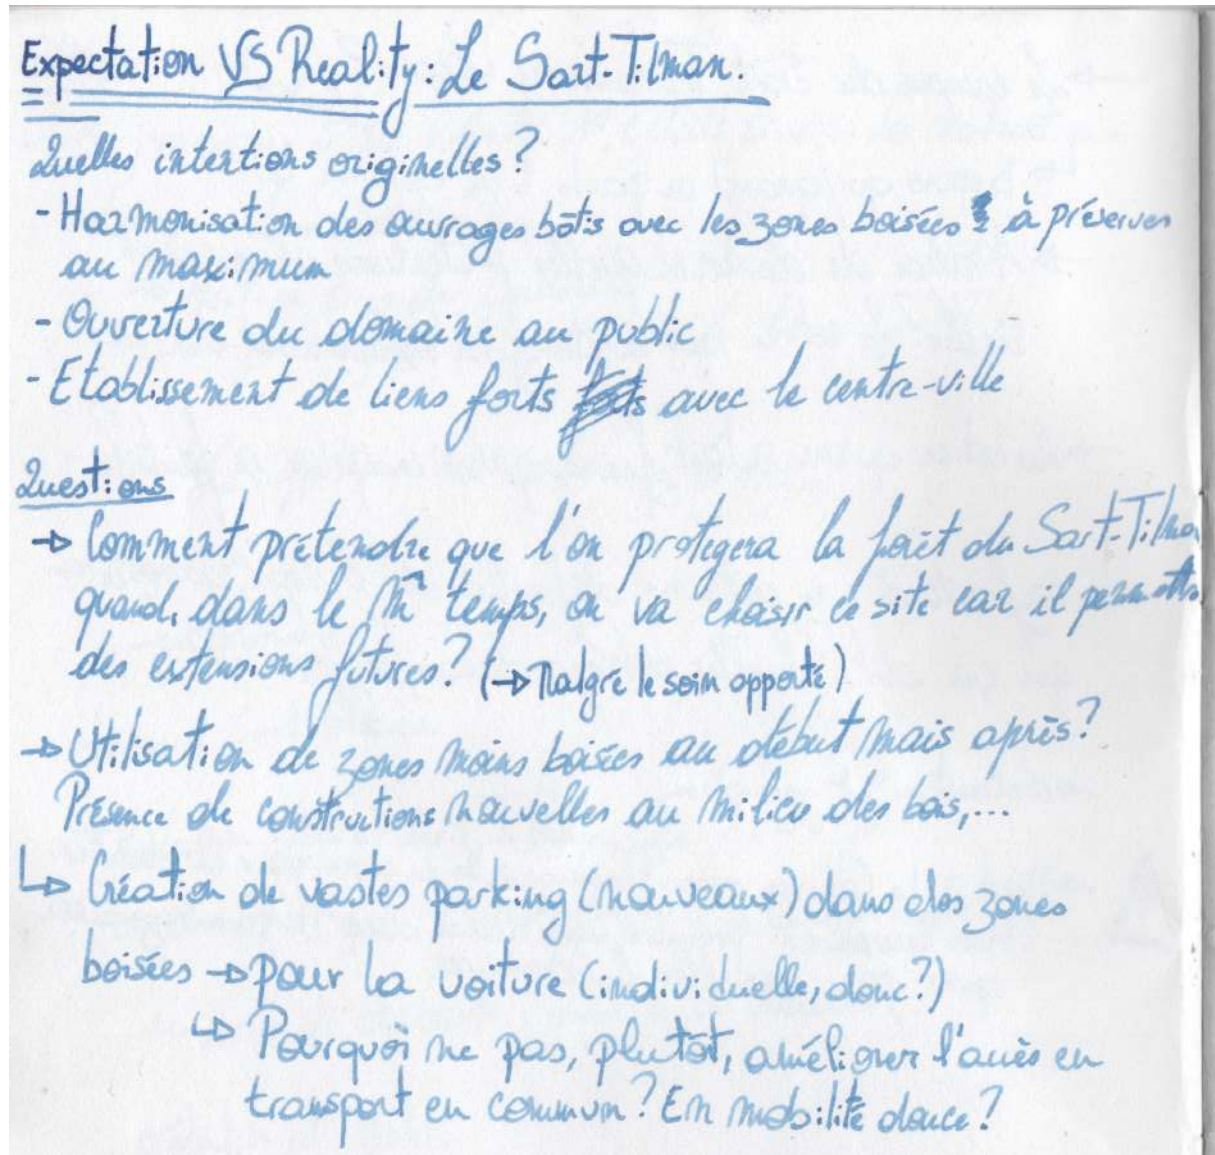 Expectation VS Reality: Le Sart-Tilman.
Quelles intentions originelles?
- Harmonisation des ouvrages bâtis avec les zones boisées à préserver
au maximum
- Ouverture du domaine au public
- Etablissement de liens forts avec le centre-ville
Questions
→ Comment prétendre que l'on protegera la forêt du Sart-Tilman
quand, dans le m̂ temps, on va choisir ce site car il permettra
des extensions futures? (→ Malgré le soin apporté)
→ Utilisation de zones moins boisées au début mais après?
Présence de constructions nouvelles au milieu des bois,...
↳ Création de vastes parking (nouveaux) dans des zones
boisées → pour la voiture (individuelle, donc?)
↳ Pourquoi ne pas, plutôt, améliorer l'accès en
transport en commun? En mobilité douce?